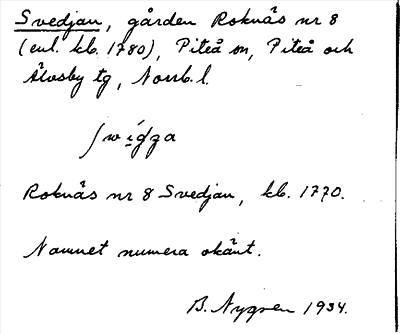 Svedjan, gården Roknäs nr 8
(enl. kb. 1780), Piteå sn, Piteå och
Älvsby tg, Norrb. l.
Roknäs nr 8 Svedjan, kb. 1770.
Namnet numera okänt.
B. Nygren 1934.